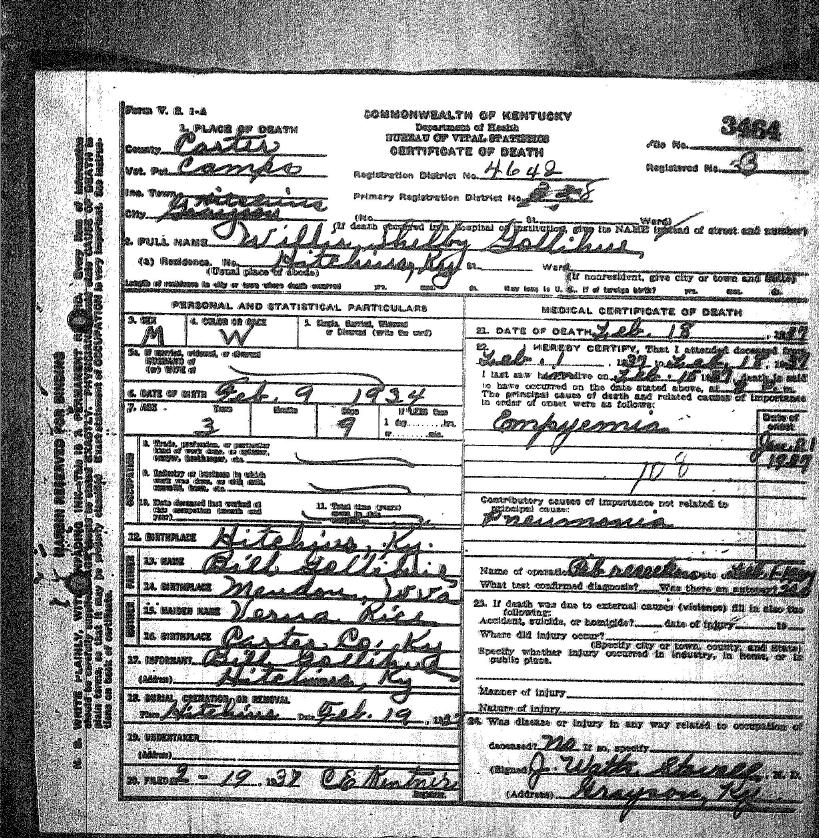 Form V. S. 1-A
COMMONWEALTH OF KENTUCKY
Department of Health
BUREAU OF VITAL STATISTICS
CERTIFICATE OF DEATH
3464
File No.
Registered No. 3
1. PLACE OF DEATH
County Carter
Vot. Pct. Camps
Inc. Town Hitchins
City Grayson
Registration District No. 4642
Primary Registration District No.
(No. St. Ward)
(If death occurred in a hospital or institution, give its NAME instead of street and number)
2. FULL NAME Willis Shelby Gollihue
(a) Residence. No. Hitchins, Ky St. Ward
(Usual place of abode) (If nonresident, give city or town and State)
Length of residence in city or town where death occurred yrs. mos. ds. How long in U. S., if of foreign birth? yrs. mos. ds.
PERSONAL AND STATISTICAL PARTICULARS
3. SEX M
4. COLOR OR RACE W
5. Single, Married, Widowed or Divorced (write the word)
5a. If married, widowed, or divorced
HUSBAND of
(or) WIFE of
6. DATE OF BIRTH Feb. 9 1934
7. AGE Years 3 Months Days 9 If LESS than 1 day, hrs. or min.
OCCUPATION
8. Trade, profession, or particular kind of work done, as spinner, sawyer, bookkeeper, etc.
9. Industry or business in which work was done, as silk mill, sawmill, bank, etc.
10. Date deceased last worked at this occupation (month and year)
11. Total time (years) spent in this occupation
12. BIRTHPLACE Hitchins, Ky.
FATHER
13. NAME Bill Gollihue
14. BIRTHPLACE W Va
MOTHER
15. MAIDEN NAME Verna Rice
16. BIRTHPLACE Carter Co, Ky
17. INFORMANT Bill Gollihue
(Address) Hitchins, Ky
18. BURIAL, CREMATION OR REMOVAL
Place Hitchins Date Feb. 19, 1937
19. UNDERTAKER
(Address)
20. FILED 2-19 1937 C E
Registrar.
MEDICAL CERTIFICATE OF DEATH
21. DATE OF DEATH Feb. 18, 1937
22. I HEREBY CERTIFY, That I attended deceased from
Feb. 1 1937 to Feb 18, 1937
I last saw him alive on Feb. 1937 death is said
to have occurred on the date stated above, at m.
The principal cause of death and related causes of importance
in order of onset were as follows:
Date of onset
Empyemia Jan. 21
1937
108
Contributory causes of importance not related to
principal cause:
Pneumonia
Name of operation Date of
What test confirmed diagnosis? Was there an autopsy? no
23. If death was due to external causes (violence) fill in also the
following:
Accident, suicide, or homicide? date of injury 19
Where did injury occur?
(Specify city or town, county, and State)
Specify whether injury occurred in industry, in home, or in
public place.
Manner of injury
Nature of injury
24. Was disease or injury in any way related to occupation of
deceased? No If so, specify
(Signed) J. Watts Stovall, M. D.
(Address) Grayson, Ky.
MARGIN RESERVED FOR BINDING